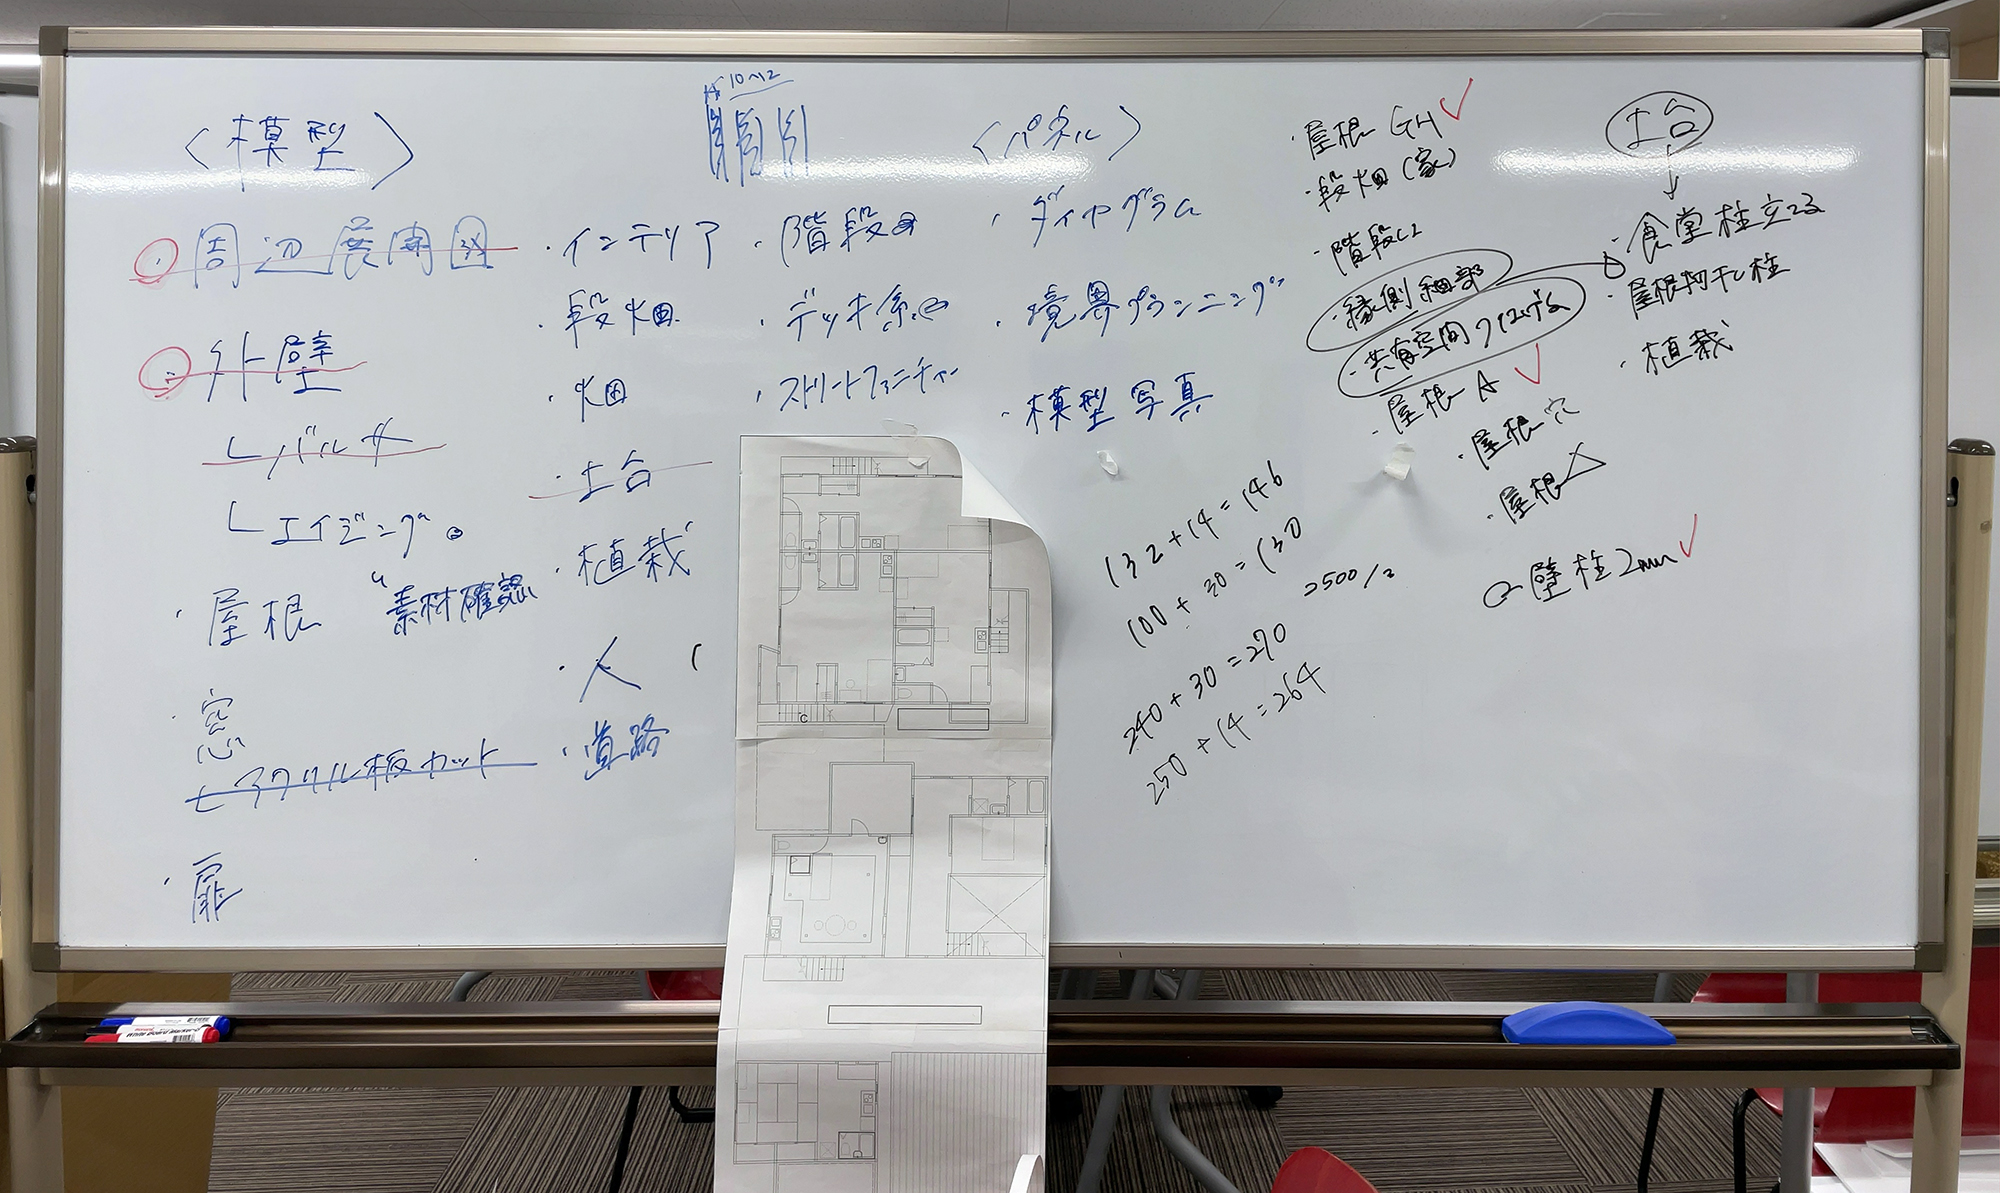 〈模型〉
・周辺展開図
・外壁
└バルサ
└エイジング。
・屋根 "素材確認
・窓
アクリル板カット
・扉
・インテリア
・段畑
・畑
・土台
・植栽
・人 (
・道路
10~12
・階段
・デッキ系
・ストリートファニチャー
〈パネル〉
・ダイヤグラム
・境界プランニング
・模型写真
132+14=146
100+30=130
2500/2
240+30=270
250+14=264
・屋根 GH
・段畑(家)
・階段
・縁側細部
・共有空間
・屋根 A
・屋根穴
・屋根△
壁柱2mm
土台
↓
・食堂柱立てる
・屋根物干し柱
・植栽
C